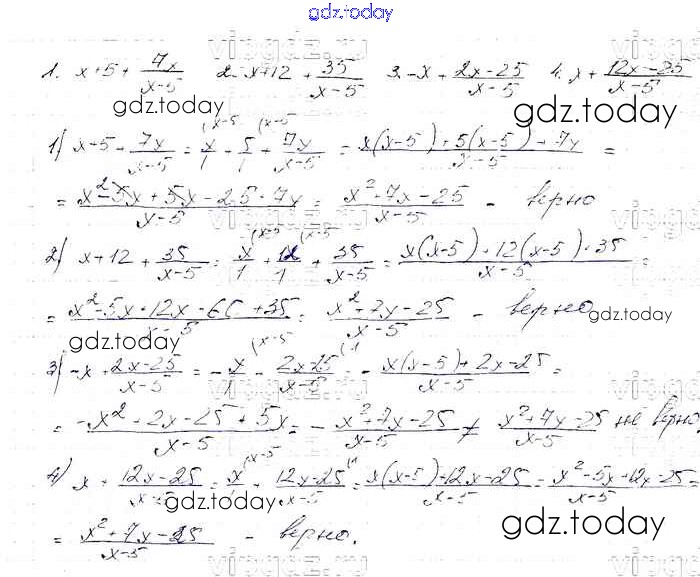 gdz.today
1. x+5+ 7x/(x-5) 2. x+12 + 35/(x-5) 3. -x + (2x-25)/(x-5) 4. x + (12x-25)/(x-5)
gdz.today gdz.today
1) x+5+ 7x/(x-5) = x/1 (x-5 + 5/1 (x-5 + 7x/(x-5) = (x(x-5)+5(x-5)+7x)/(x-5) =
= (x²-5x+5x-25+7x)/(x-5) = (x²+7x-25)/(x-5) - верно
2) x+12 + 35/(x-5) = x/1 (x-5 + 12/1 (x-5 + 35/(x-5) = (x(x-5)+12(x-5)+35)/(x-5) =
= (x²-5x+12x-60+35)/(x-5) = (x²+7x-25)/(x-5) - верно
gdz.today gdz.today
3) -x + (2x-25)/(x-5) = - x/1 (x-5 - (2x-25)/(x-5) (-1 = - (x(x-5)+2x-25)/(x-5) =
= (-x²+2x-25+5x)/(x-5) = - (x²+7x-25)/(x-5) ≠ (x²+7x-25)/(x-5) не верно
4) x + (12x-25)/(x-5) = x/1 (x-5 + (12x-25)/(x-5) (1 = (x(x-5)+12x-25)/(x-5) = (x²-5x+12x-25)/(x-5) =
gdz.today gdz.today
= (x²+7x-25)/(x-5) - верно.